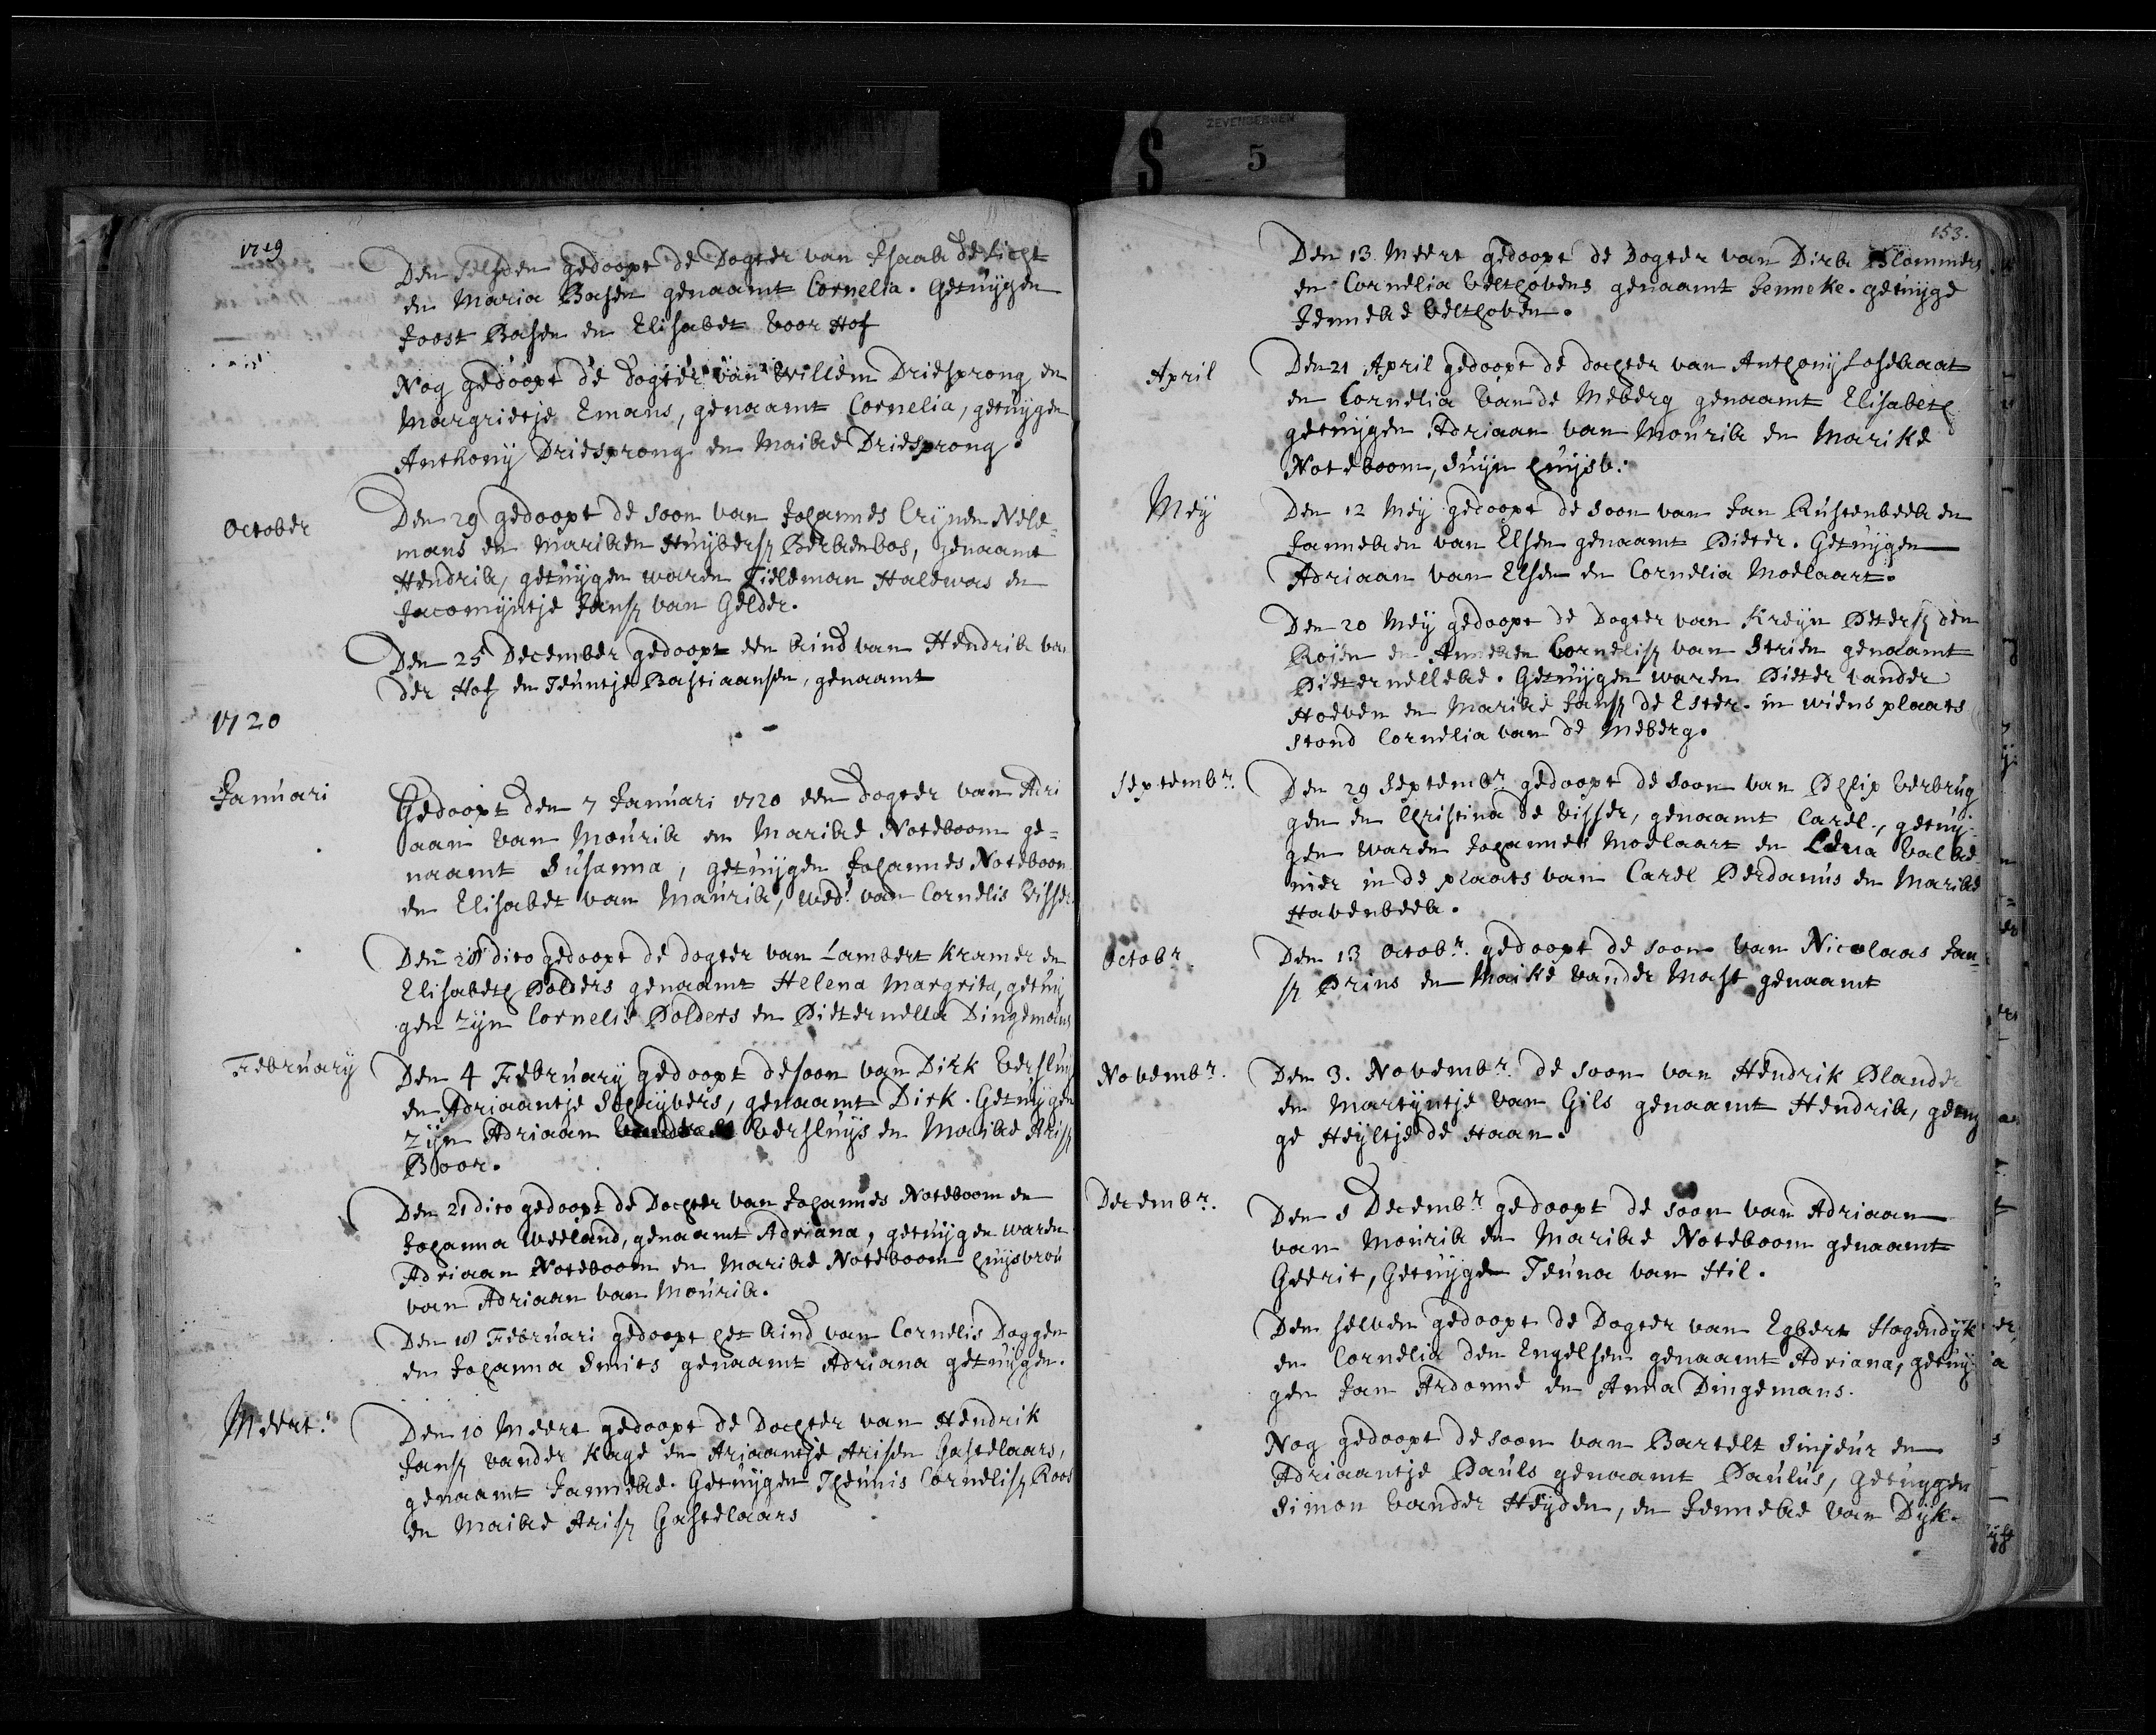 ZEVENBERGEN
S 5
1719
Den selfden gedoopt de Dogter van Isaak de Licht
en Maria Basen genaamt Cornelia. Getuijgen
Joost Basen en Elisabet Voor Hof
Nog gedoopt de dogter van Willem Driesprong en
Margrietje Emans, genaamt Cornelia, getuijgen
Anthonij Driesprong en Maike Driesprong.
October
Den 29 gedoopt de soon van Johannes Crijnen Nele-
mans en Mariken Huijbersz Berkenbos, genaamt
Hendrik, getuijgen waren Tieleman Halewas en
Jacomijntje Jansz van Gelder.
Den 25 December gedoopt een kind van Hendrik van
der Hof en Teuntje Bastiaansen, genaamt
1720
Januari
Gedoopt den 7 Januari 1720 een dogter van Adri
aan van Mourik en Marike Noteboom ge=
naamt Susanna, getuijgen Johannes Noteboom
en Elisabet van Maurik, wed. van Cornelis Visser.
Den 28 dito gedoopt de dogter van Lambert Kramer en
Elisabeth Polders genaamt Helena Margrita, getuij
gen zijn Cornelis Polders en Pieternella Dingemans
February
Den 4 February gedoopt de soon van Dirk Versluij
en Adriaantje Schrijvers, genaamt Dirk. Getuijgen
zijn Adriaan Versluijs en Marike Arisz
Boor.
Den 21 dito gedoopt de Dochter van Johannes Noteboom en
Johanna Weeland, genaamt Adriana, getuijgen waren
Adriaan Noteboom en Marike Noteboom huijsvrou
van Adriaan van Mourik.
Den 18 Februari gedoopt het kind van Cornelis Doggen
en Johanna Smits genaamt Adriana getuijgen.
Meert.
Den 10 Meert gedoopt de Dochter van Hendrik
Jansz vander Kage en Ariaantje Arisen Gastelaars,
genaamt Janneke. Getuijgen Theunis Cornelisz Roos
en Maike Arisz Gastelaars
153.
Den 13 Meert gedoopt de Dogter van Dirk Blommers
en Cornelia Velthovens genaamt Jenneke. getuijge
Jenneke Velthoven.
April
Den 21 April gedoopt de dochter van Anthonij Losekaat
en Cornelia van de Meberg genaamt Elisabeth
getuijgen Adriaan van Mourik en Marike
Noteboom, sijn huijsv.
Meij
Den 12 Meij gedoopt de soon van Jan Rustenbeek en
Janneken van Elsen genaamt Pieter. Getuijgen
Adriaan van Elsen en Cornelia Moelaart.
Den 20 Meij gedoopt de Dogter van Kreijn Petersz den
Rojen en Anneken Cornelisz van Strien genaamt
Pieternelleke. Getuijgen waren Pieter vander
Hoeven en Marike Jansz de Ester. in wiens plaats
stond Cornelia van de Meberg.
Septembr.
Den 29 Septembr. gedoopt de soon van Philip Verbrug
gen en Christina de Visser, genaamt Carel, getuij-
gen waren Johannes Moelaart en Lena Valke
nier in de plaats van Carel Perdanus en Marike
Havenbeek.
Octobr.
Den 13 Octobr. gedoopt de soon van Nicolaas Jan-
sz Prins en Maike vander Mast genaamt
Novembr.
Den 3. Novembr. de soon van Hendrik Plander
en Martijntje van Gils genaamt Hendrik, getuij
ge Heijltje de Haan.
Decembr.
Den 8 Decembr. gedoopt de soon van Adriaan
van Mourik en Marike Noteboom genaamt
Geerit, Getuijge Teuna van Hil.
Den selven gedoopt de Dogter van Egbert Hogendijk
en Cornelia den Engelsen genaamt Adriana, getuij
gen Jan Ardonne en Anna Dingemans.
Nog gedoopt de soon van Bartelt Sinjeur en
Adriaantje Pauls genaamt Paulus, Getuijgen
Simon vander Heijden, en Jenneke van Dijk.